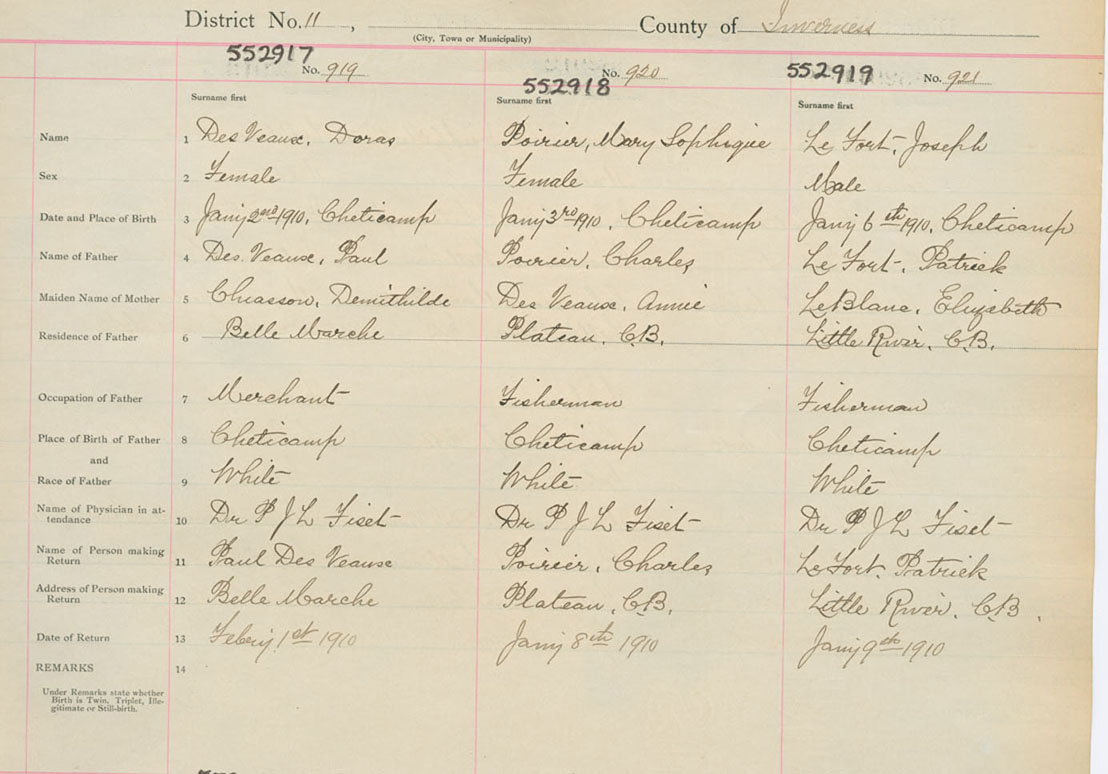 District No. 11, County of Inverness
(City, Town or Municipality)
552917 552918 552919
No. 919 No. 920 No. 921
Surname first Surname first Surname first
Name 1 Des Veaux, Doras Poirier, Mary Sophique Le Fort, Joseph
Sex 2 Female Female Male
Date and Place of Birth 3 Jany 2nd 1910, Cheticamp Jany 3rd 1910, Cheticamp Jany 6th 1910, Cheticamp
Name of Father 4 Des Veaux, Paul Poirier, Charles Le Fort, Patrick
Maiden Name of Mother 5 Chiasson, Demithilde Des Veaux, Annie LeBlanc, Elizabeth
Residence of Father 6 Belle Marche Plateau, C.B. Little River, C.B.
Occupation of Father 7 Merchant Fisherman Fisherman
Place of Birth of Father 8 Cheticamp Cheticamp Cheticamp
and
Race of Father 9 White White White
Name of Physician in at-
tendance 10 Dr P J L Fiset Dr P J L Fiset Dr P J L Fiset
Name of Person making
Return 11 Paul Des Veaux Poirier, Charles Le Fort, Patrick
Address of Person making
Return 12 Belle Marche Plateau, C.B. Little River, C.B.
Date of Return 13 Febry 1st 1910 Jany 8th 1910 Jany 9th 1910
REMARKS 14
Under Remarks state whether
Birth is Twin, Triplet, Ille-
gitimate or Still-birth.